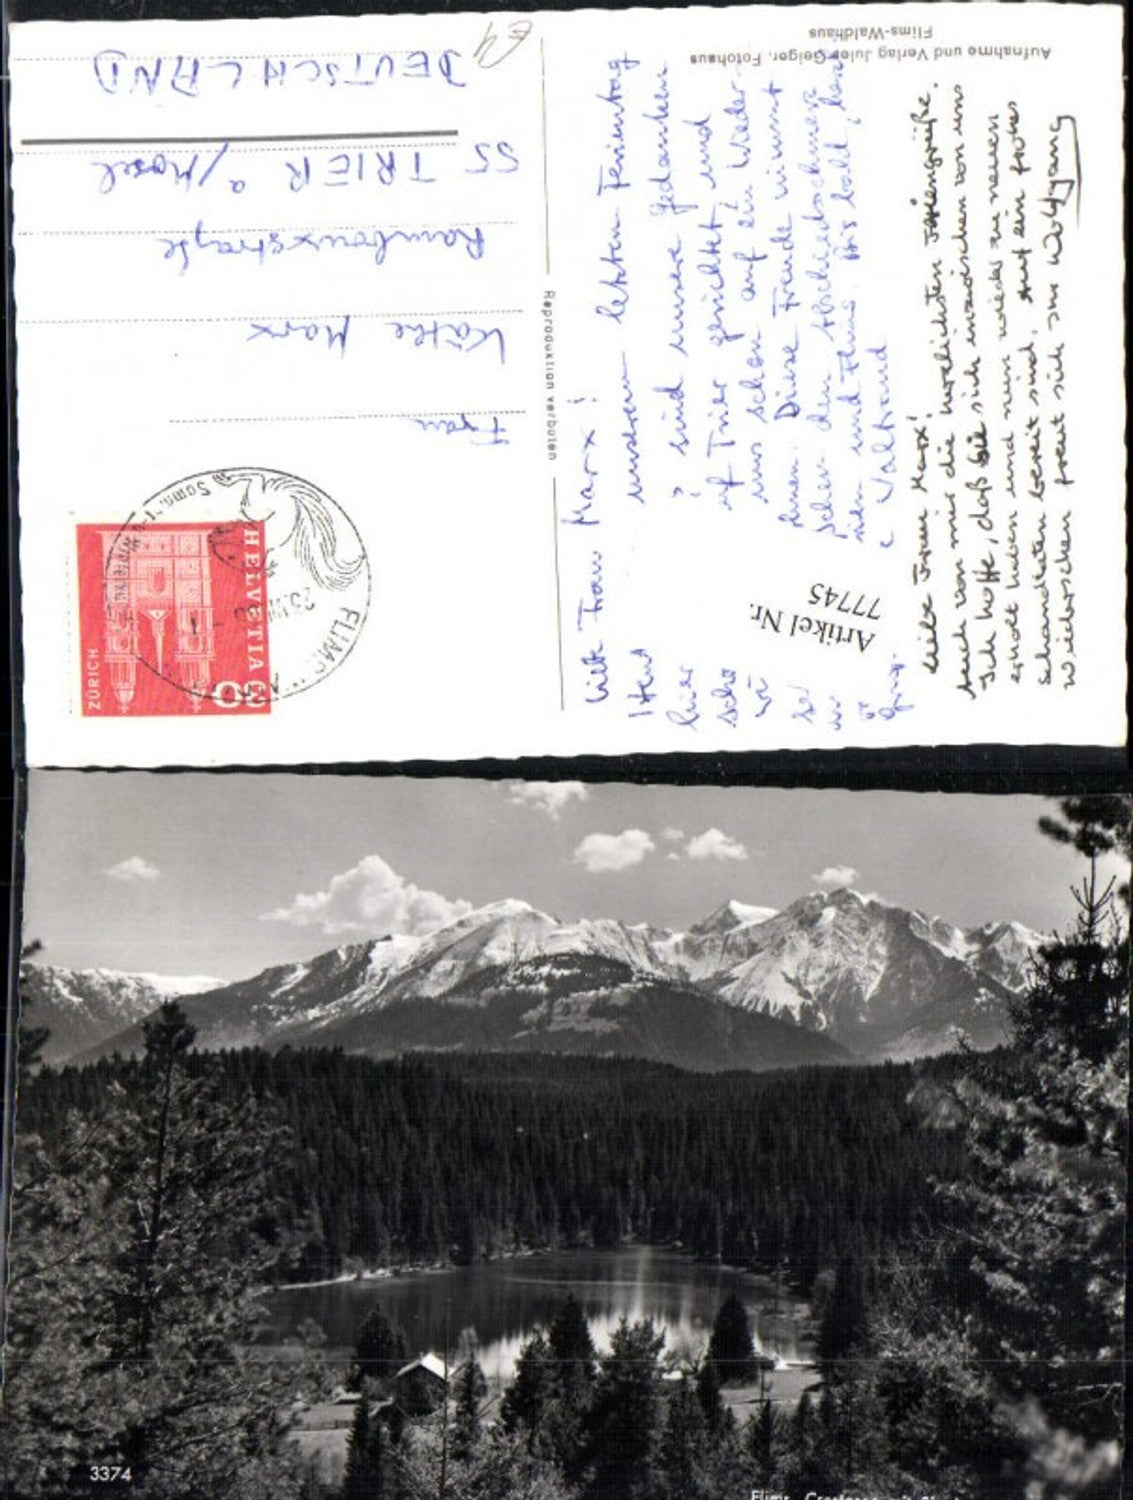 Aufnahme und Verlag Jules Geiger, Fotohaus
Flims-Waldhaus
Reproduktion verboten
HELVETIA
ZÜRICH
FLIMS
Frau
Käthe Marx
Rambouxstraße
55 TRIER a/Mosel
DEUTSCHLAND
Artikel Nr.
77745
Liebe Frau Marx!
unserem letzten Ferientag
sind unsere Gedanken
Trier gerichtet, und
uns schon auf ein Wieder-
Ihnen. Diese Freude nimmt
den Abschiedsschmerz
und Flims. Bis bald,
Waltraud
Liebe Frau Marx!
Auch von mir die herzlichsten Feriengrüße.
Ich hoffe, daß Sie sich inzwischen von uns
erholt haben und nun wieder zu neuen
Schandtaten bereit sind. Auf ein frohes
Wiedersehen freut sich Ihr Wolfgang
3374
Flims